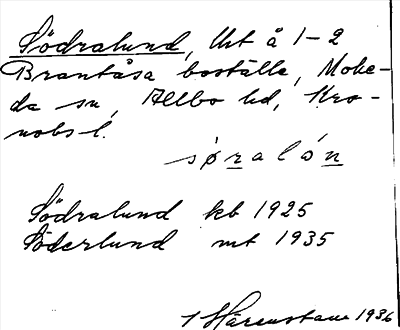 Södralund, Utt å 1-2
Brantåsa boställe, Mohe-
da sn, Allbo hd, Kro-
nobs l.
søralón
Södralund kb 1925
Söderlund mt 1935
1936